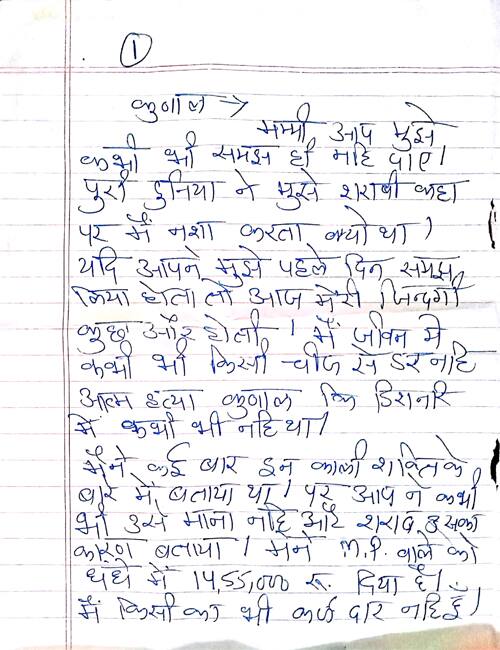 1
कुणाल →
मम्मी आप मुझे
कभी भी समझ ही नहि पाए।
पुरी दुनिया ने मुझे शराबी कहा
पर मैं नशा करता क्यो था।
यदि आपने मुझे पहले दिन समझ
लिया होता तो आज मेरी जिन्दगी
कुछ और होती। मैं जीवन मे
कभी भी किसी चीज से डर नहि
आत्म हत्या कुणाल कि डिशनरि
मे कभी भी नहि था।
मैंने कई बार इन काली शक्ति के
बारे मे बताया था। पर आप ने कभी
भी उसे माना नहि और शराब उसका
कारण बताया। मैने M.P. वाले को
धंधे में 14,55,000 रु. दिया है।
मैं किसी का भी कर्ज दार नहि हूँ।